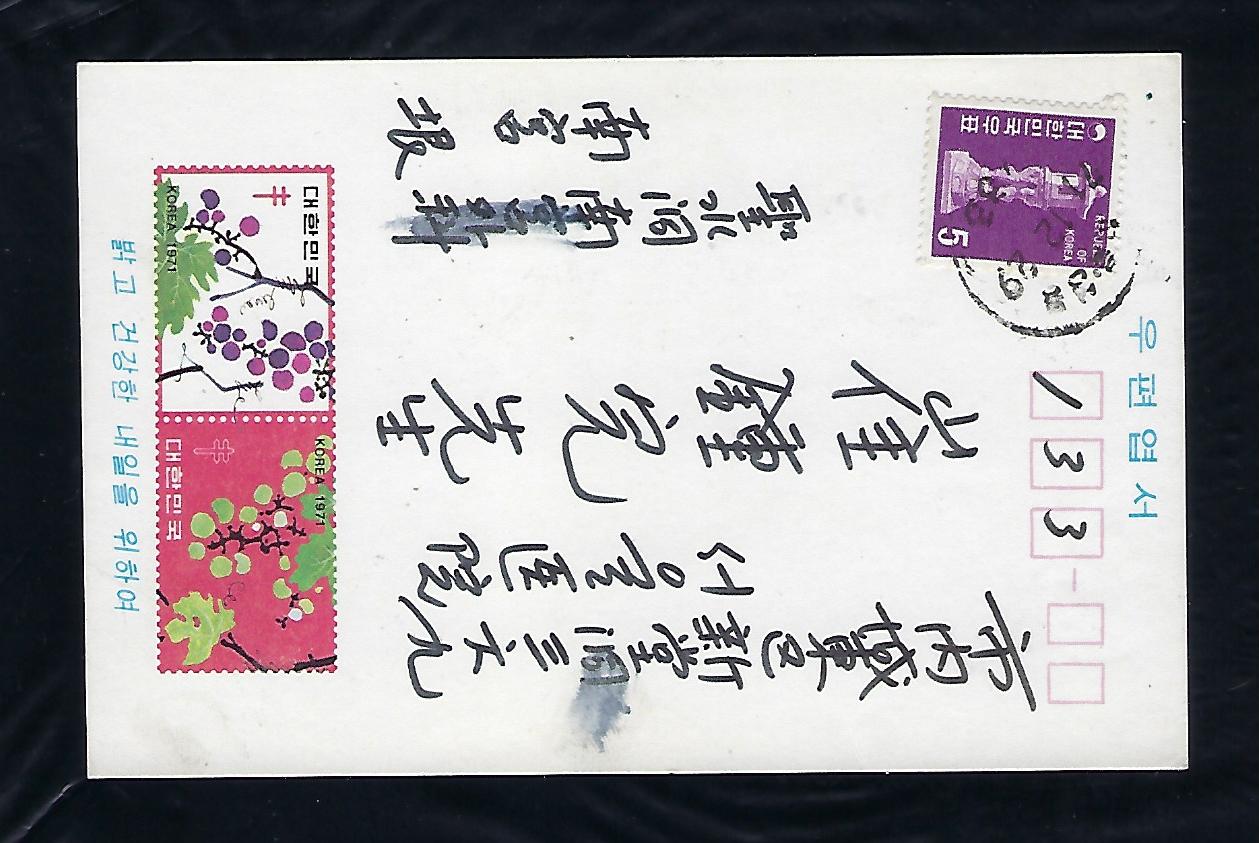 우편엽서
133-
대한민국우표
5
REPUBLIC
OF
KOREA
市內 城東区 新堂洞 三六九
서울医院
崔鐘完 先生
聖水洞 南宮外科
南宮垠
대한민국
KOREA 1971
대한민국
KOREA 1971
밝고 건강한 내일을 위하여